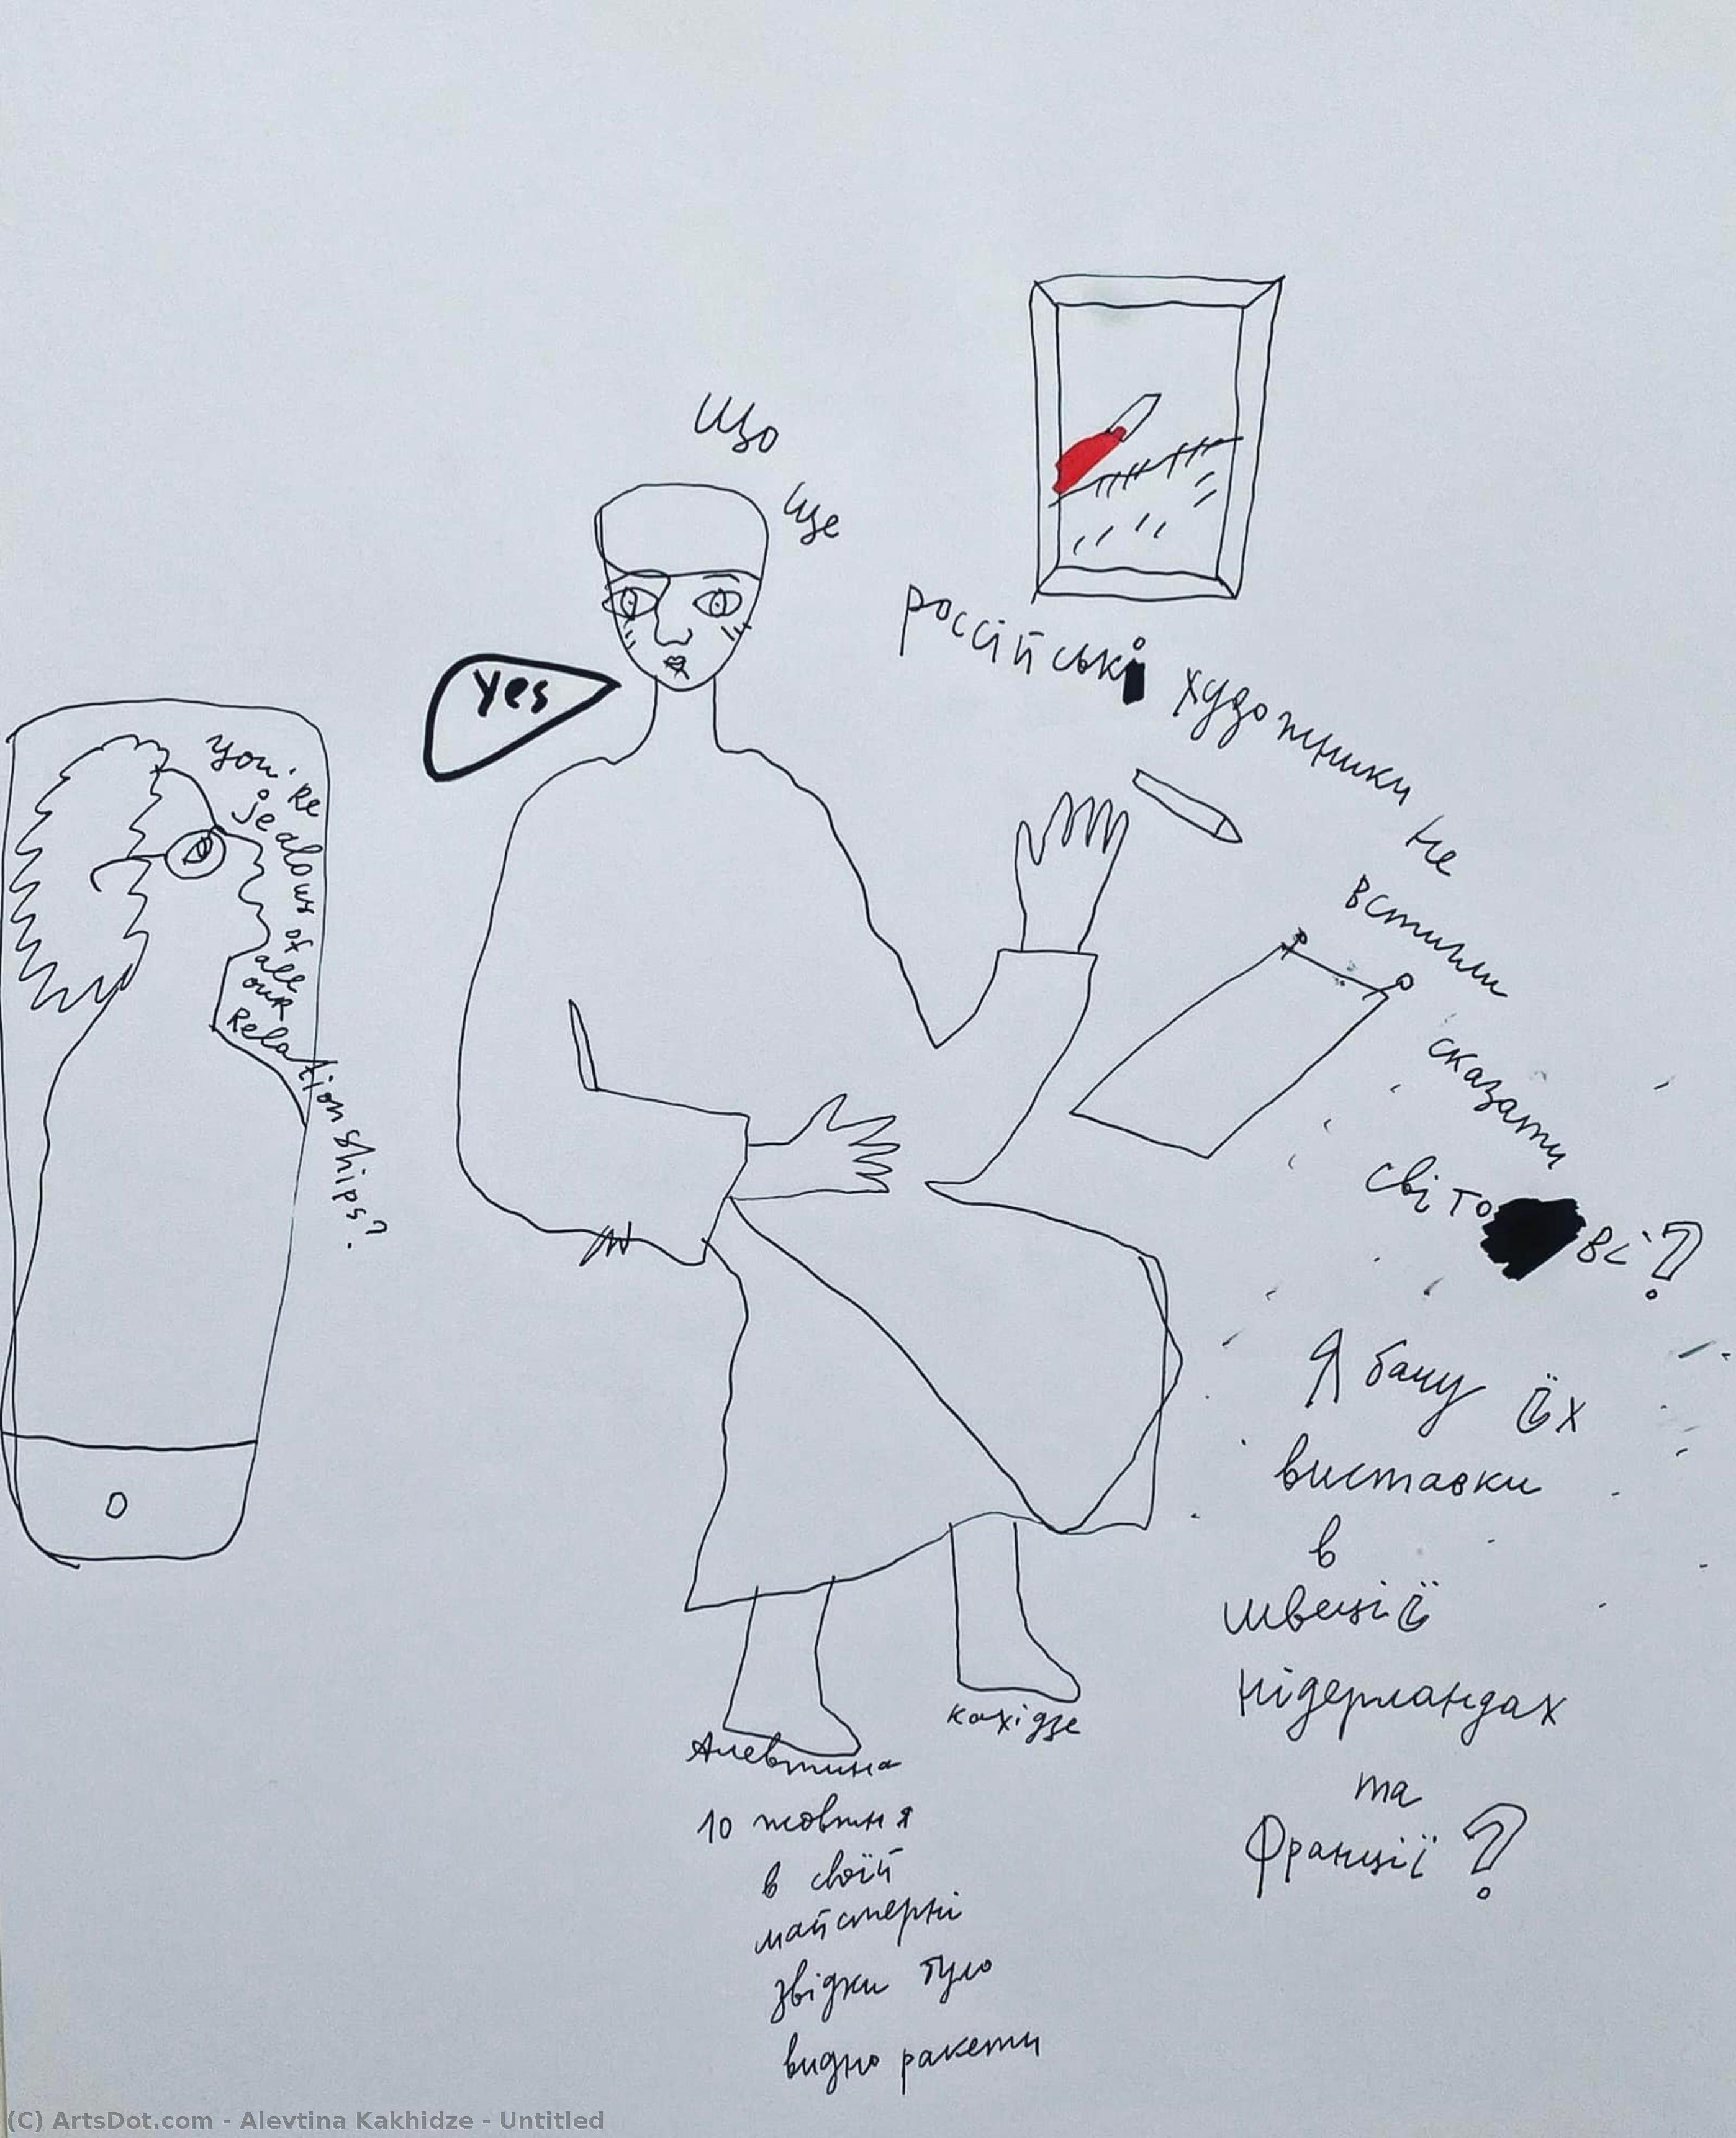 Що
ще
російські художники не
встигли
сказати
світо ві?
Yes
you're
jealous of
all
our
Relationships?
Я бачу їх
виставки
в
швеції
нідерландах
та
Франції?
Алевтина
кахідзе
10 жовтня
в своїй
майстерні
звідки було
видно ракети
(C) ArtsDot.com - Alevtina Kakhidze - Untitled